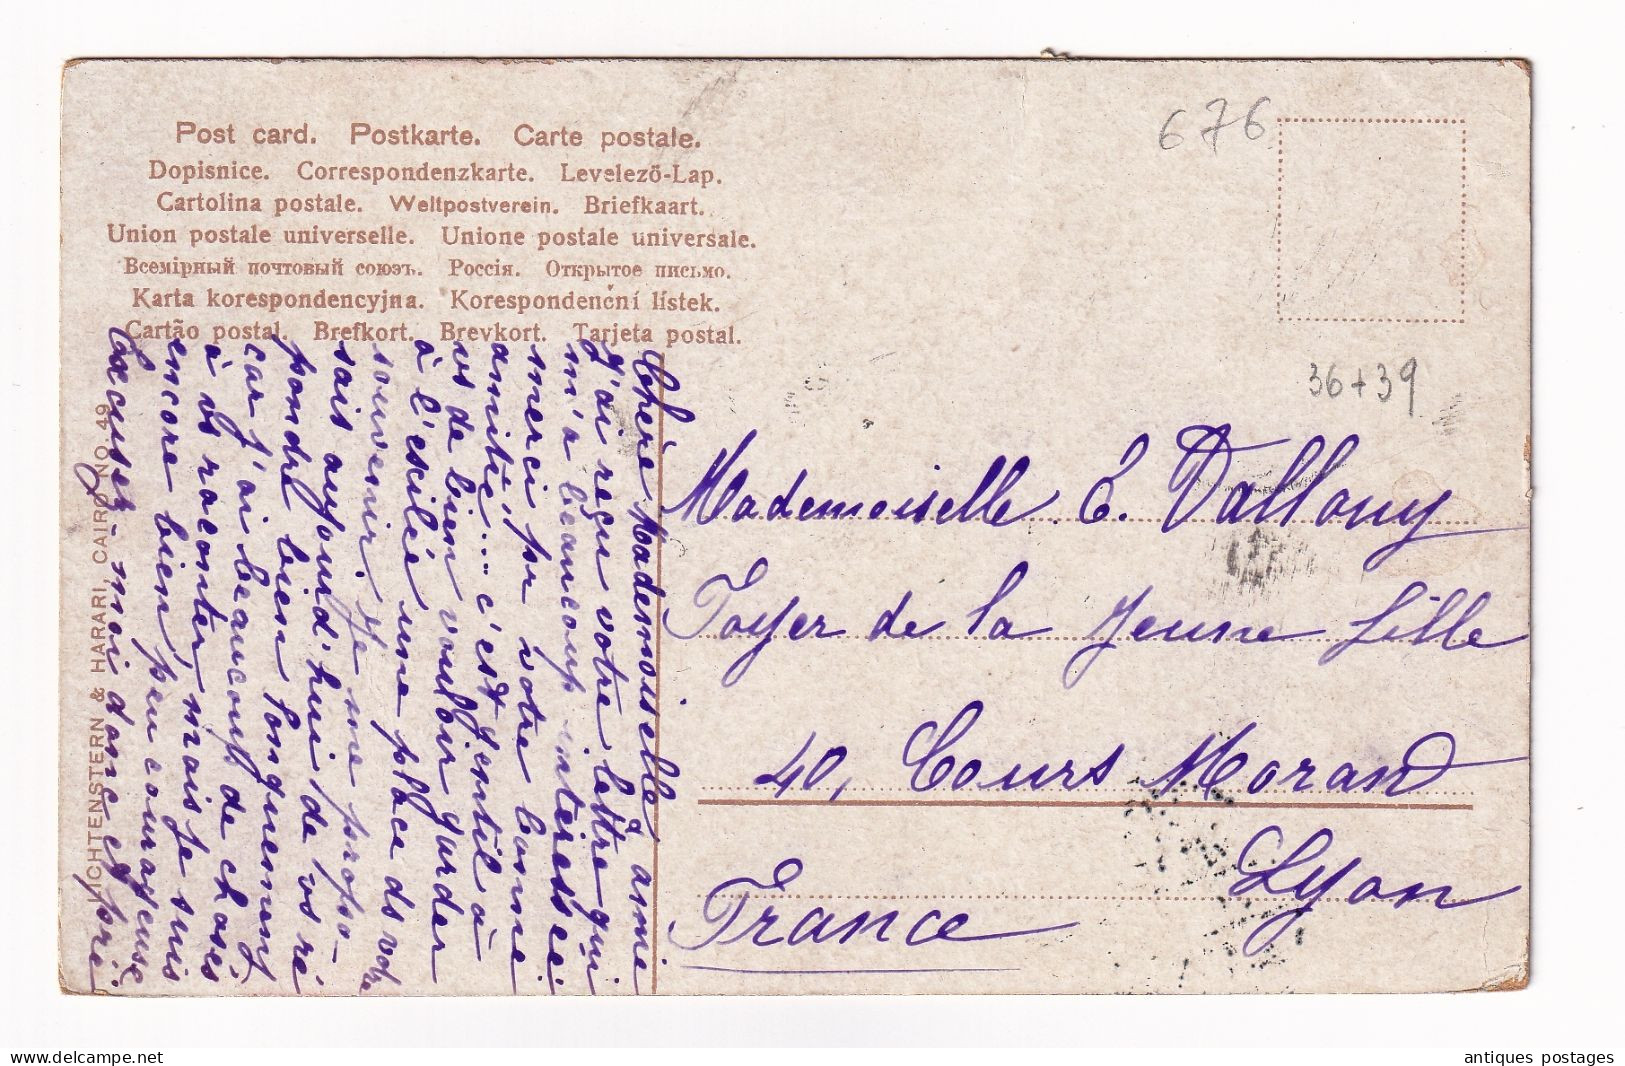 Post card. Postkarte. Carte postale.
Dopisnice. Correspondenzkarte. Levelező-Lap.
Cartolina postale. Weltpostverein. Briefkaart.
Union postale universelle. Unione postale universale.
Всемірный почтовый союзъ. Россія. Открытое письмо.
Karta korespondencyjna. Korespondenční lístek.
Cartão postal. Brefkort. Brevkort. Tarjeta postal.
676
36+39
LICHTENSTERN & HARARI, CAIRO NO. 49
Chère Mademoiselle & amie
J'ai reçu votre lettre qui
m'a beaucoup intéressée
merci pr votre bonne
amitié... c'est gentil à
vs de bien vouloir garder
à l'exilée une place ds votre
souvenir. Je me propo-
sais aujourd'hui de vs ré
pondre bien longuement
car j'ai beaucoup de choses
à vs raconter, mais je suis
encore bien peu courageuse
Excusez-moi donc &
Mademoiselle E. Vallouy
Foyer de la Jeune fille
40, Cours Morand
Lyon
France
delcampe.net
antiques postages